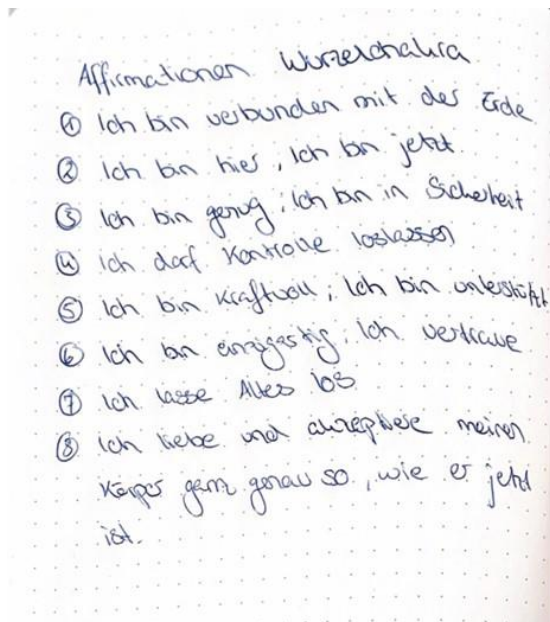 Affirmationen Wurzelchakra
① Ich bin verbunden mit der Erde
② Ich bin hier, Ich bin jetzt.
③ Ich bin genug, Ich bin in Sicherheit
④ Ich darf Kontrolle loslassen
⑤ Ich bin Kraftvoll, Ich bin unterstützt
⑥ Ich bin einzigartig, ich vertraue
⑦ Ich lasse Alles los
⑧ Ich liebe und akzeptiere meinen
Körper ganz genau so, wie er jetzt
ist.